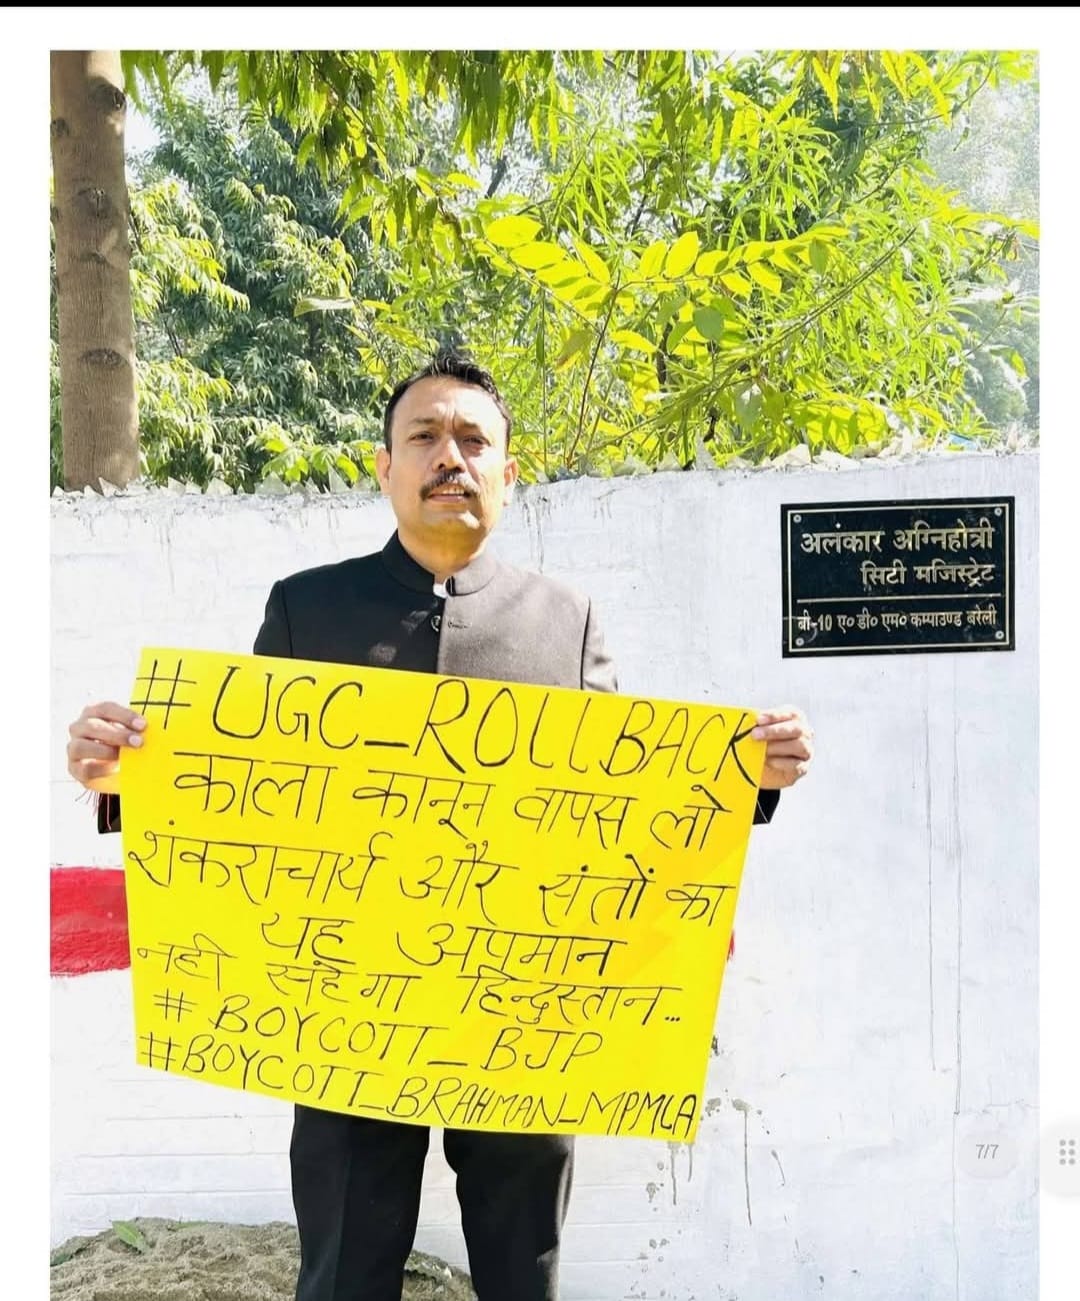 अलंकार अग्निहोत्री
सिटी मजिस्ट्रेट
बी-10 ए० डी० एम० कम्पाउण्ड बरेली
#UGC_ROLLBACK
काला कानून वापस लो
शंकराचार्य और संतों का
यह अपमान
नही सहेगा हिन्दुस्तान...
#BOYCOTT_BJP
#BOYCOTT_BRAHMAN_MPMLA
7/7